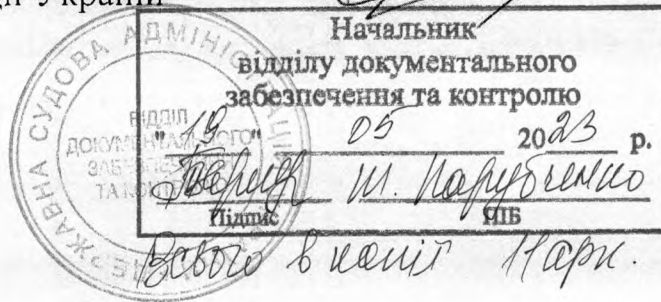 України
Начальник
відділу документального
забезпечення та контролю
"19" 05 2023 р.
Підпис ПІБ
Всього в копії 11 арк.
ДЕРЖАВНА СУДОВА АДМІНІСТРАЦІЯ
ВІДДІЛ
ДОКУМЕНТАЛЬНОГО
ЗАБЕЗПЕЧЕННЯ
ТА КОНТРОЛЮ